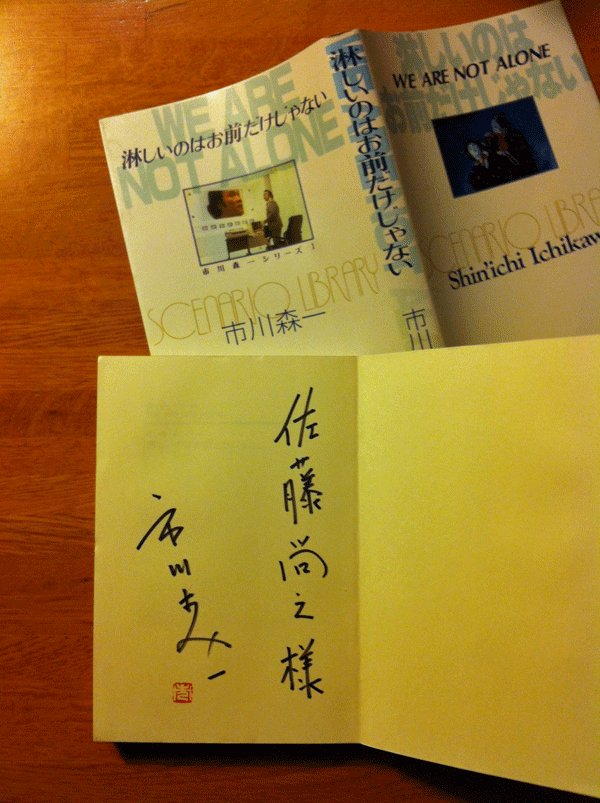 WE ARE
NOT ALONE
淋しいのはお前だけじゃない
市川森一シリーズ 1
SCENARIO LIBRARY
市川森一
淋しいのはお前だけじゃない
市川
淋しいのは
お前だけじゃない
WE ARE NOT ALONE
SCENARIO LIBRA
Shin'ichi Ichikaw
佐藤尚之様
市川森一